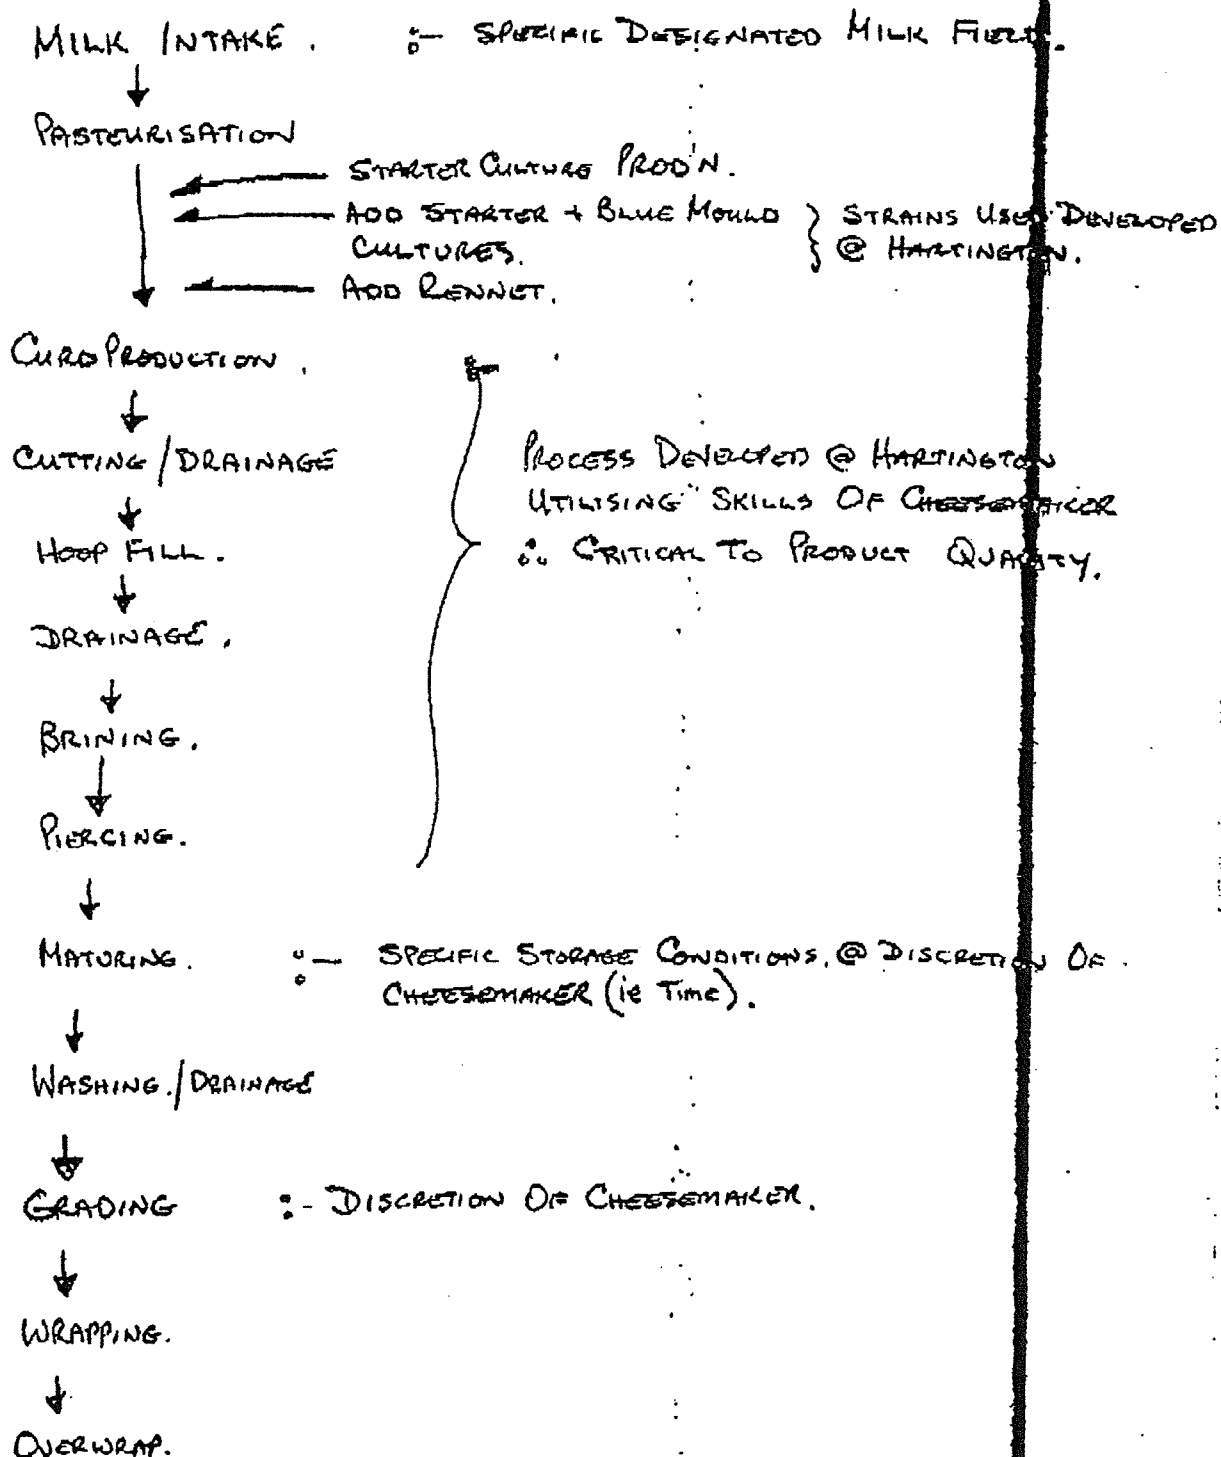 MILK INTAKE. :- SPECIFIC DESIGNATED MILK FIELD.
PASTEURISATION
STARTER CULTURE PROD'N.
ADD STARTER + BLUE MOULD } STRAINS USED DEVELOPED
CULTURES. @ HARTINGTON.
ADD RENNET.
CURD PRODUCTION. :-
CUTTING/DRAINAGE PROCESS DEVELOPED @ HARTINGTON
UTILISING SKILLS OF CHEESEMAKER
HOOP FILL. ∴ CRITICAL TO PRODUCT QUALITY.
DRAINAGE.
BRINING.
PIERCING.
MATURING. :- SPECIFIC STORAGE CONDITIONS, @ DISCRETION OF
CHEESEMAKER (ie Time).
WASHING./DRAINAGE
GRADING :- DISCRETION OF CHEESEMAKER.
WRAPPING.
OVERWRAP.